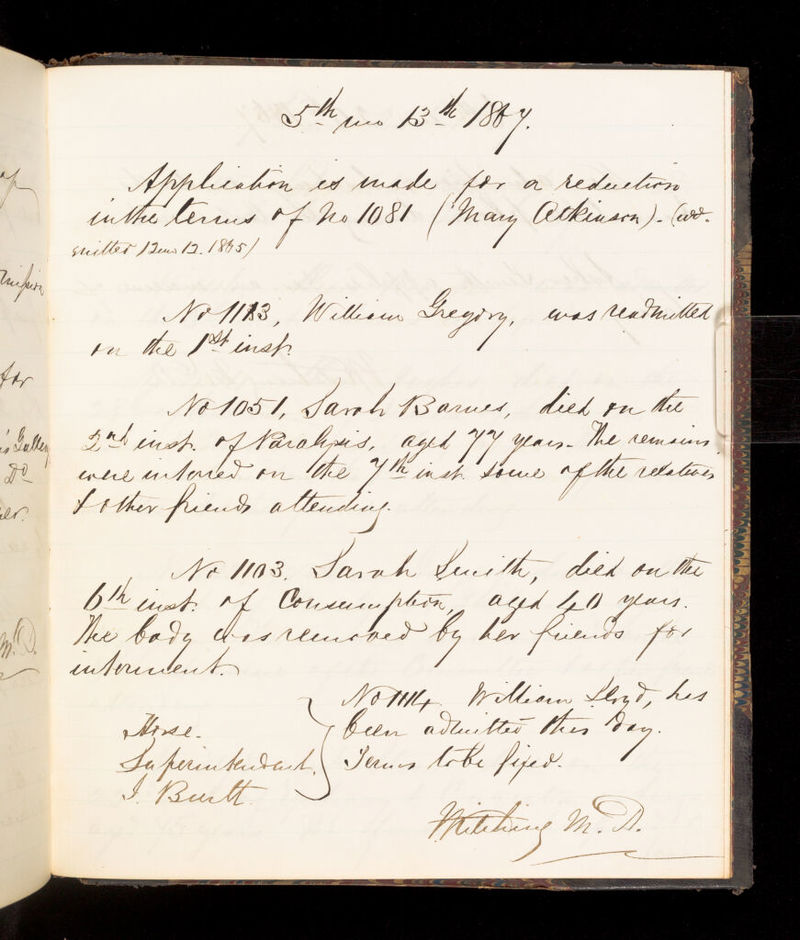 5th mo 13th 1867.
Application is made for a reduction
in the terms of No 1081 (Mary Atkinson). (ad-
mitted 12mo 12. 1865)
No 1113, William Gregory, was readmitted
on the 1st inst.
No 1051, Sarah Barnes, died on the
2nd inst. of Paralysis, aged 77 years. The remains
were interred on the 7th inst. some of the relatives
& other friends attending.
No 1103. Sarah Smith, died on the
6th inst. of Consumption, aged 40 years.
The body was removed by her friends for
interment.
No 1114. William Lloyd, has
been admitted this day.
Terms to be fixed.
Horse.
Superintendent.
I. Burtt.
Kitching M.D.
for
Do
M.D.